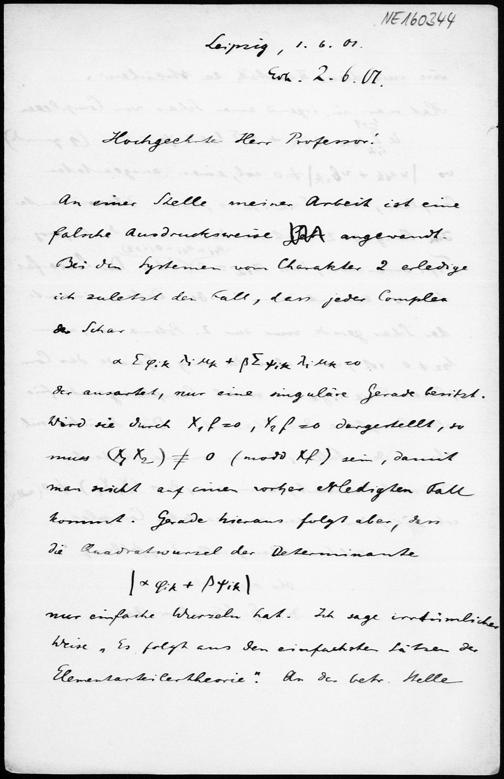 NE160344
Leipzig, 1. 6. 01.
Erh. 2. 6. 01.
Hochgeehrter Herr Professor!
An einer Stelle meiner Arbeit ist eine
falsche Ausdrucksweise angewandt.
Bei den Systemen vom Charakter 2 erledige
ich zuletzt den Fall, dass jeder Complex
der Schar
α Σ φik λi μk + β Σ ψik λi μk = 0
der ausartet, nur eine singuläre Gerade besitzt.
Wird sie durch X1f = 0, X2f = 0 dargestellt, so
muss (X1 X2) ≠ 0 (modd Xf) sein, damit
man nicht auf einen vorher erledigten Fall
kommt. Gerade hieraus folgt aber, dass
die Quadratwurzel der Determinante
|α φik + β ψik|
nur einfache Wurzeln hat. Ich sage irrtümlicher
Weise „Es folgt aus den einfachsten Sätzen der
Elementarteilertheorie“. An der betr. Stelle